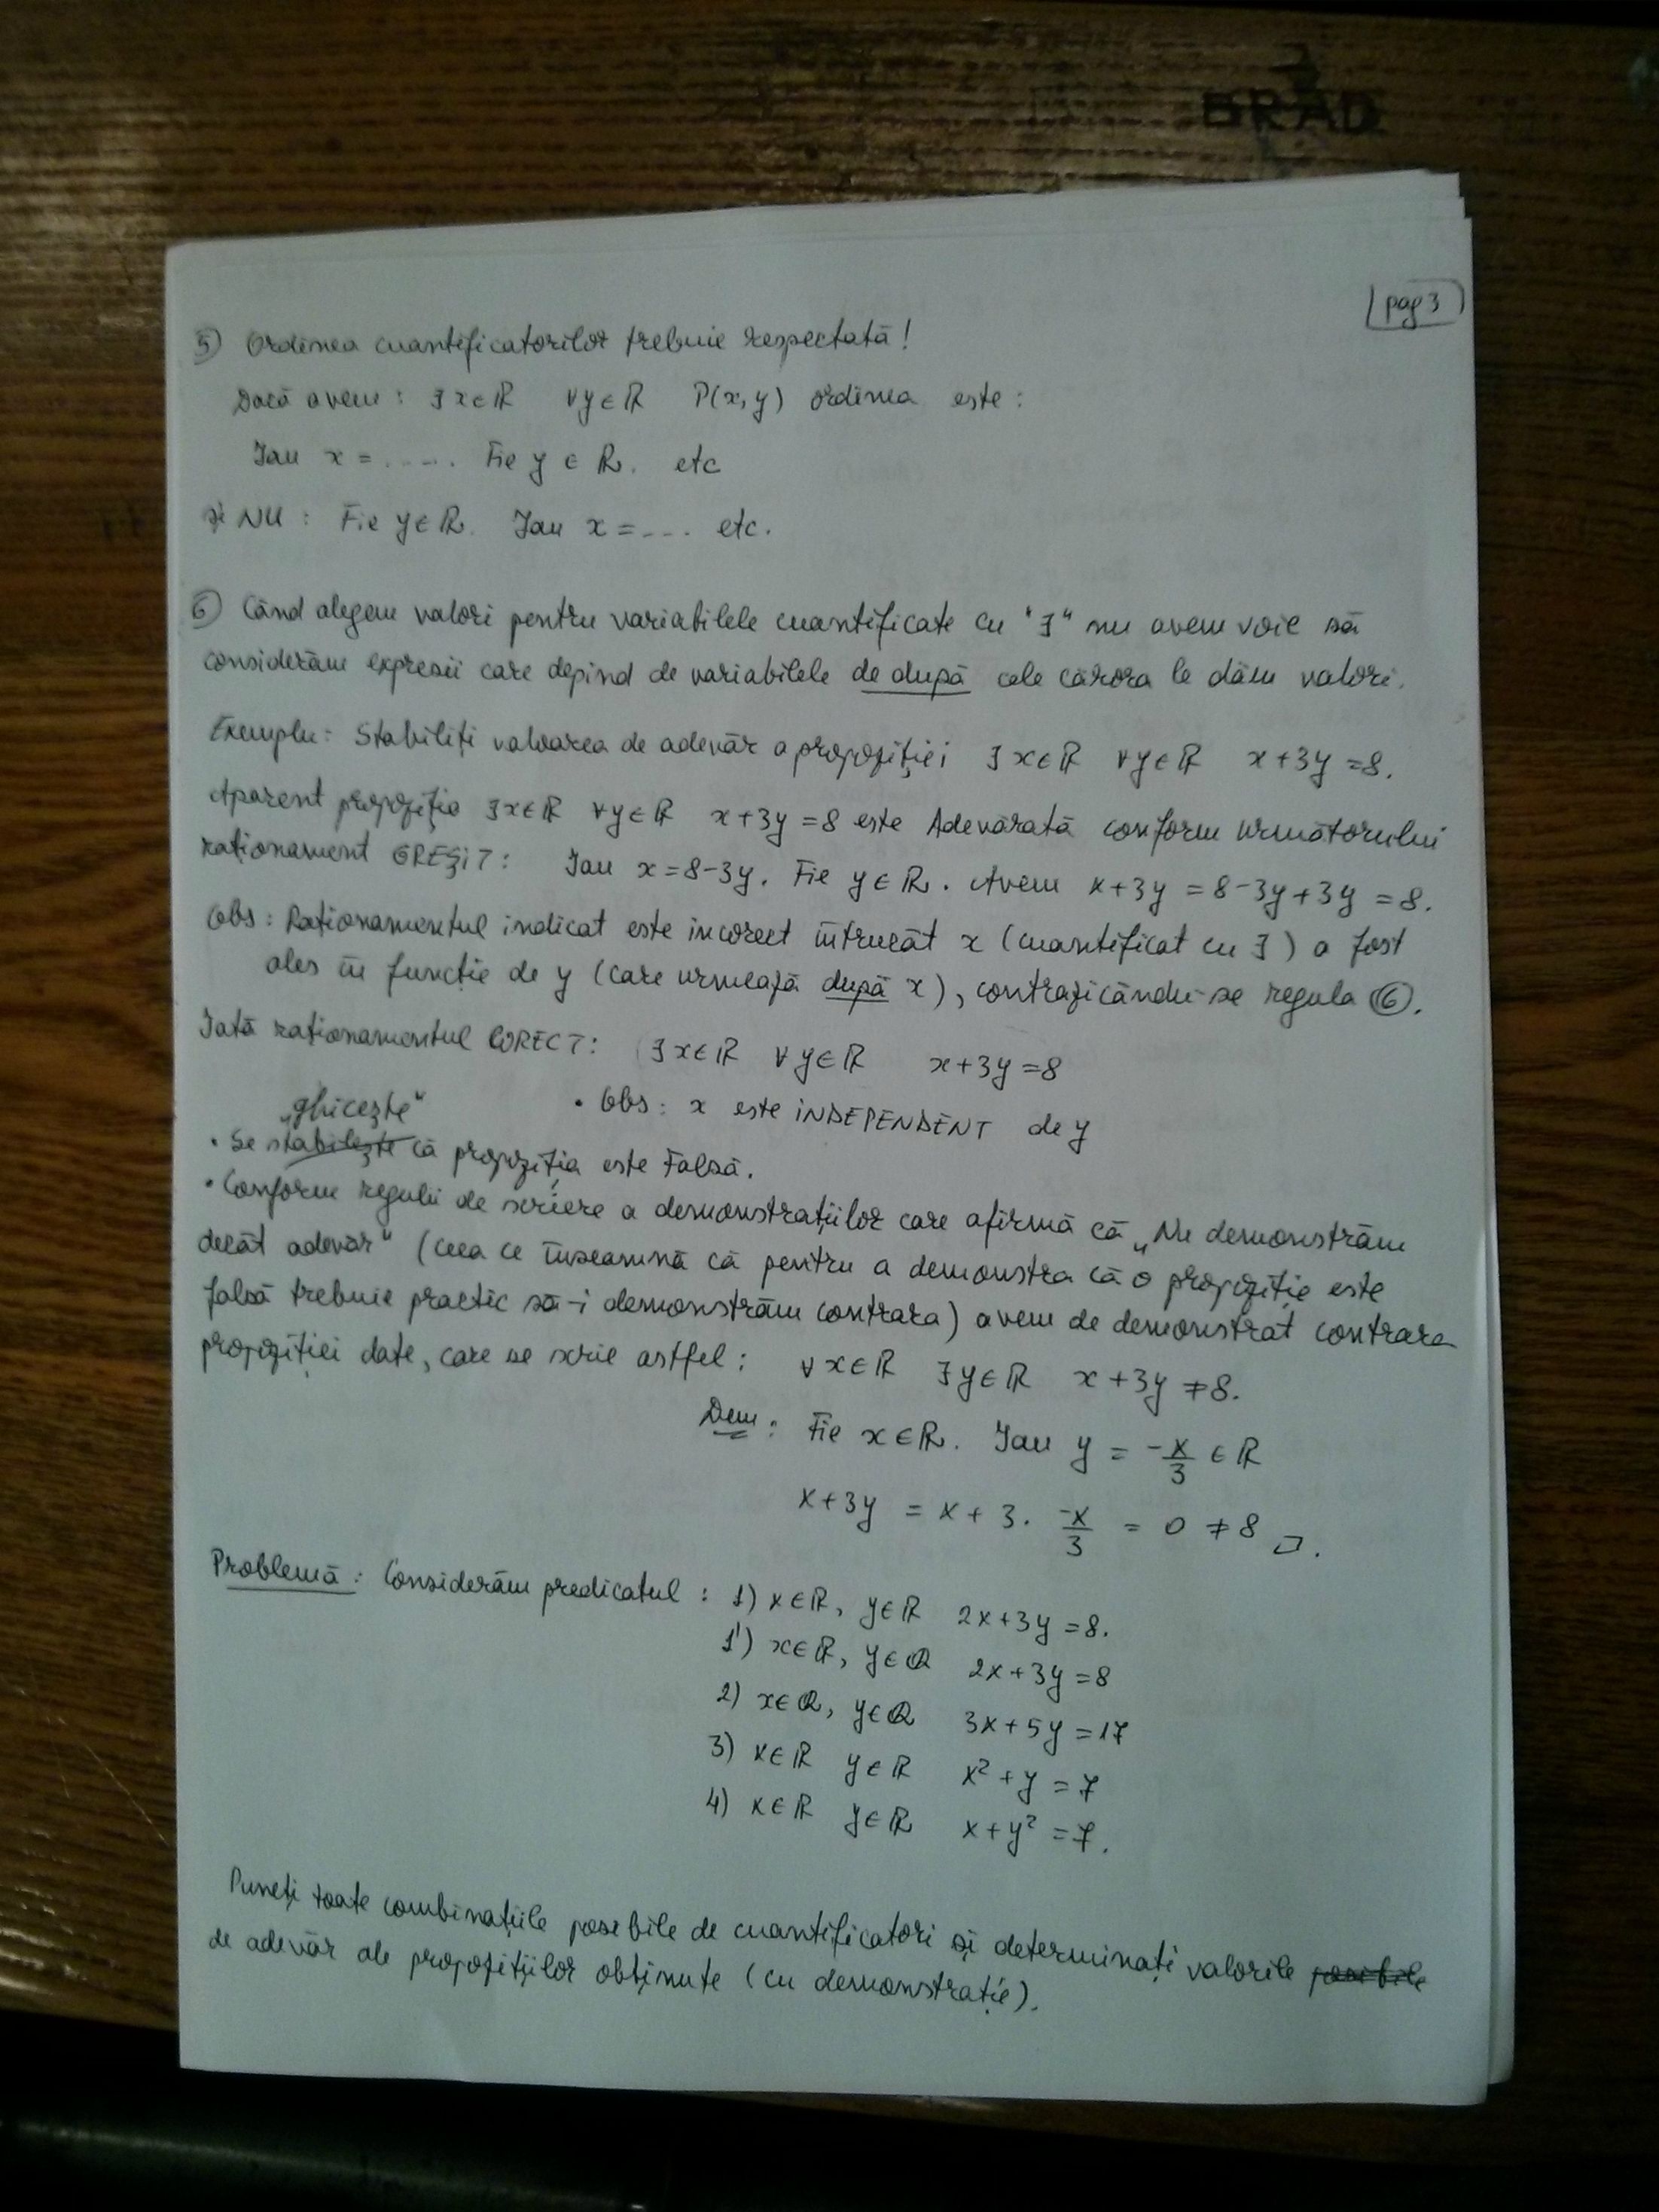 BRAD
pag 3
5) Ordinea cuantificatorilor trebuie respectată!
Dacă avem: ∃x∈ℝ ∀y∈ℝ P(x,y) ordinea este:
Iau x = ..... Fie y ∈ ℝ. etc
și NU: Fie y∈ℝ. Iau x = .... etc.
6) Când alegem valori pentru variabilele cuantificate cu "∃" nu avem voie să
considerăm expresii care depind de variabilele de după cele cărora le dăm valori.
Exemplu: Stabiliți valoarea de adevăr a propoziției ∃x∈ℝ ∀y∈ℝ x+3y=8.
Aparent propoziția ∃x∈ℝ ∀y∈ℝ x+3y=8 este Adevărată conform următorului
raționament GREȘIT: Iau x=8-3y. Fie y∈ℝ. Avem x+3y = 8-3y+3y = 8.
Obs: Raționamentul indicat este incorect întrucât x (cuantificat cu ∃) a fost
ales în funcție de y (care urmează după x), contrazicându-se regula 6.
Iată raționamentul CORECT: ∃x∈ℝ ∀y∈ℝ x+3y=8
• Obs: x este INDEPENDENT de y
„ghicește"
• Se stabilește că propoziția este Falsă.
• Conform regulii de scriere a demonstrațiilor care afirmă că „Nu demonstrăm
decât adevăr" (ceea ce înseamnă că pentru a demonstra că o propoziție este
falsă trebuie practic să-i demonstrăm contrara) avem de demonstrat contrara
propoziției date, care se scrie astfel: ∀x∈ℝ ∃y∈ℝ x+3y≠8.
Dem: Fie x∈ℝ. Iau y = -x/3 ∈ ℝ
x+3y = x+3·-x/3 = 0 ≠ 8 □.
Problemă: Considerăm predicatul: 1) x∈ℝ, y∈ℝ 2x+3y=8.
1') x∈ℝ, y∈ℚ 2x+3y=8
2) x∈ℚ, y∈ℚ 3x+5y=17
3) x∈ℝ y∈ℝ x²+y=7
4) x∈ℝ y∈ℝ x+y²=7.
Puneți toate combinațiile posibile de cuantificatori și determinați valorile posibile
de adevăr ale propozițiilor obținute (cu demonstrație).